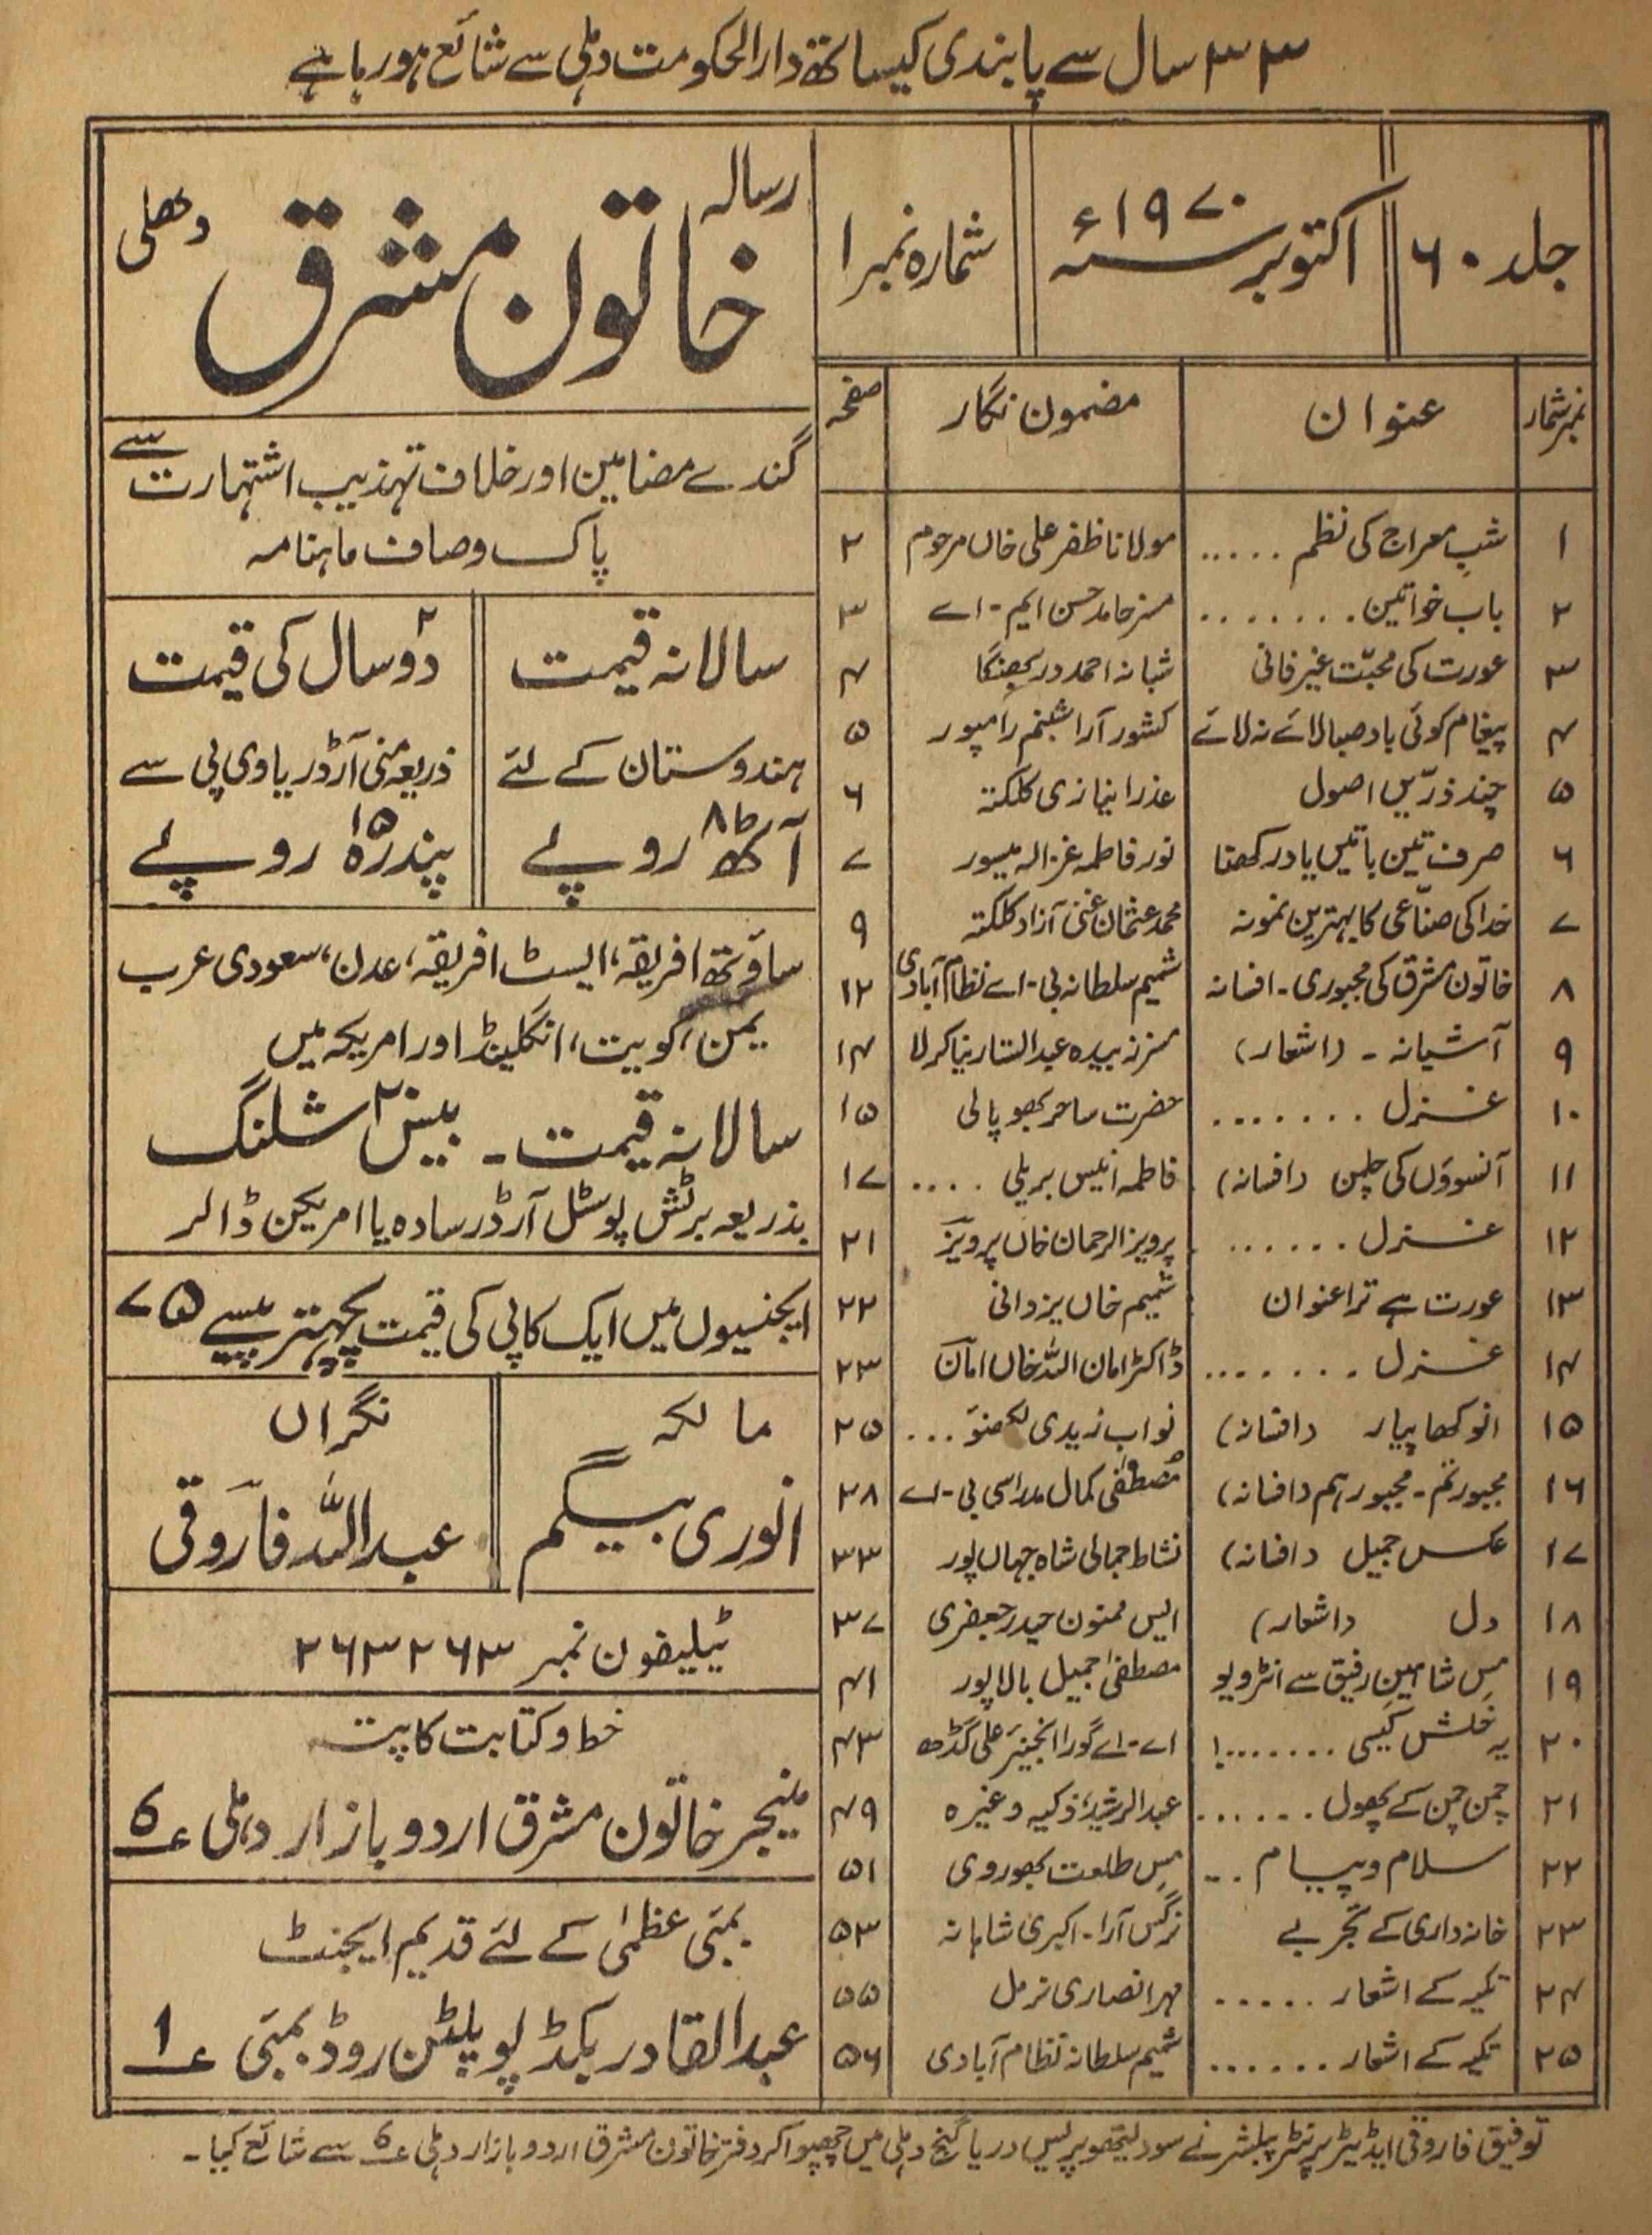 ۳۳ سال سے پابندی کیساتھ دارالحکومت دہلی سے شائع ہورہا ہے
جلد ۶۰
اکتوبر سنہ ۱۹۷۰ء
شمارہ نمبر ۱
رسالہ
خاتون مشرق
دھلی
نمبر شمار عنوان مضمون نگار صفحہ
۱ شبِ معراج کی نظم ..... مولانا ظفر علی خاں مرحوم ۲
۲ باب خواتین ........ مسز حامد حسن ایم-اے ۳
۳ عورت کی محبّت غیر فانی شبانہ احمد دربھنگا ۴
۴ پیغام کوئی باد صبا لائے نہ لائے کشور آرا شبنم رامپور ۵
۵ چند ذرّیں اصول عذرا نیازی کلکتہ ۶
۶ صرف تین باتیں یاد رکھنا نور فاطمہ غزالہ میسور ۷
۷ خدا کی صنّاعی کا بہترین نمونہ محمد عثمان غنی آزاد کلکتہ ۹
۸ خاتون مشرق کی مجبوری - افسانہ شمیم سلطانہ بی-اے نظام آبادی ۱۲
۹ آشیانہ - (اشعار) مسز زبیدہ عبدالستار بنیا کرلا ۱۴
۱۰ غزل ....... حضرت ساحر بھوپالی ۱۵
۱۱ آنسوؤں کی چلمن (افسانہ) فاطمہ انیس بریلی .... ۱۷
۱۲ غزل ...... پرویز الرحمان خاں پرویز ۲۱
۱۳ عورت ہے ترا عنوان شمیم خاں یزدانی ۲۲
۱۴ غزل ....... ڈاکٹر امان اللہ خاں امان ۲۳
۱۵ انوکھا پیار (افسانہ) نواب زیدی لکھنؤ ... ۲۵
۱۶ مجبور تم - مجبور ہم (افسانہ) مصطفٰی کمال مدراسی بی-اے ۲۸
۱۷ عکس جمیل (افسانہ) نشاط جمالی شاہ جہاں پور ۳۳
۱۸ دل (اشعار) ایس ممنون حیدر جعفری ۳۷
۱۹ مس شاہین رفیق سے انٹرویو مصطفٰی جمیل بالاپور ۴۱
۲۰ یہ خلش کیسی .......! اے-اے گورا انجینیر علی گڈھ ۴۳
۲۱ چمن چمن کے پھول ...... عبدالرشید، ذکیہ وغیرہ ۴۹
۲۲ سلام و پیام .. مس طلعت بھوروی ۵۱
۲۳ خانہ داری کے تجربے نرگس آرا - اکبری شاہانہ ۵۳
۲۴ تکیہ کے اشعار ..... مہر انصاری نرمل ۵۵
۲۵ تکیہ کے اشعار ...... شمیم سلطانہ نظام آبادی ۵۶
گندے مضامین اور خلاف تہذیب اشتہارت سے
پاک و صاف ماہنامہ
سالانہ قیمت
ہندوستان کے لئے
آٹھ ۸ روپے
دو ۲ سال کی قیمت
ذریعہ منی آرڈر یا وی پی سے
پندرہ ۱۵ روپے
ساؤتھ افریقہ، ایسٹ افریقہ، عدن، سعودی عرب
یمن، کویت، انگلینڈ اور امریکہ میں
سالانہ قیمت - بیس ۲۰ شلنگ
بذریعہ برٹش پوسٹل آرڈر سادہ یا امریکن ڈالر
ایجنسیوں میں ایک کاپی کی قیمت پچھتر پیسے ۷۵
مالکہ
انوری بیگم
نگراں
عبداللہ فاروقی
ٹیلیفون نمبر ۲۶۳۲۶۳
خط و کتابت کا پتہ
منیجر خاتون مشرق اردو بازار دہلی ۶؎
بمبئی عظمٰی کے لئے قدیم ایجنٹ
عبدالقادر بکڈپو پلٹن روڈ بمبئی ۱؎
توفیق فاروقی ایڈیٹر پرنٹر پبلشر نے سود لیتھو پریس دریا گنج دہلی میں چھپوا کر دفتر خاتون مشرق اردو بازار دہلی ۶؎ سے شائع کیا -